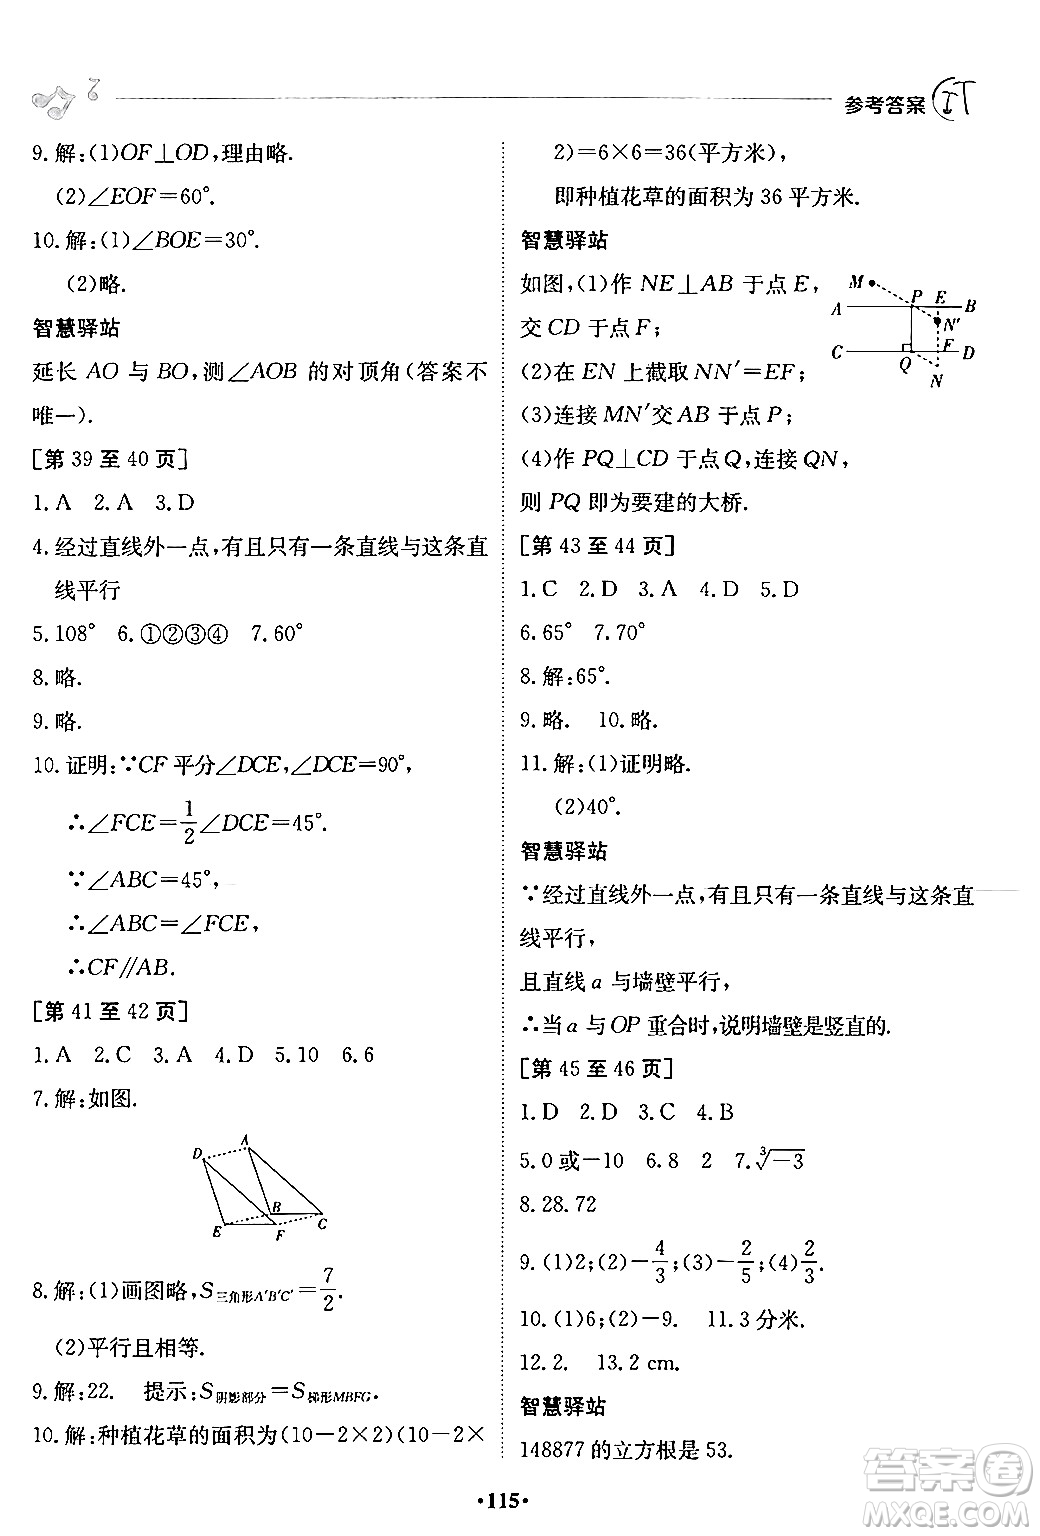 参考答案
9.解:(1)OF⊥OD,理由略.
(2)∠EOF=60°.
10.解:(1)∠BOE=30°.
(2)略.
智慧驿站
延长 AO 与 BO,测∠AOB 的对顶角(答案不
唯一).
[第 39 至 40 页]
1.A 2.A 3.D
4.经过直线外一点,有且只有一条直线与这条直
线平行
5.108° 6.①②③④ 7.60°
8.略.
9.略.
10.证明:∵CF 平分∠DCE,∠DCE=90°,
∴∠FCE=1/2∠DCE=45°.
∵∠ABC=45°,
∴∠ABC=∠FCE,
∴CF∥AB.
[第 41 至 42 页]
1.A 2.C 3.A 4.D 5.10 6.6
7.解:如图.
A
D
B
C
E
F
8.解:(1)画图略,S三角形A′B′C′=7/2.
(2)平行且相等.
9.解:22. 提示:S阴影部分=S梯形MBFG.
10.解:种植花草的面积为(10-2×2)(10-2×
2)=6×6=36(平方米),
即种植花草的面积为 36 平方米.
智慧驿站
如图,(1)作 NE⊥AB 于点 E,
交 CD 于点 F;
(2)在 EN 上截取 NN′=EF;
(3)连接 MN′交 AB 于点 P;
(4)作 PQ⊥CD 于点 Q,连接 QN,
则 PQ 即为要建的大桥.
M
P E
A B
N′
C F D
Q
N
[第 43 至 44 页]
1.C 2.D 3.A 4.D 5.D
6.65° 7.70°
8.解:65°.
9.略. 10.略.
11.解:(1)证明略.
(2)40°.
智慧驿站
∵经过直线外一点,有且只有一条直线与这条直
线平行,
且直线 a 与墙壁平行,
∴当 a 与 OP 重合时,说明墙壁是竖直的.
[第 45 至 46 页]
1.D 2.D 3.C 4.B
5.0 或-10 6.8 2 7.∛-3
8.28.72
9.(1)2;(2)-4/3;(3)-2/5;(4)2/3.
10.(1)6;(2)-9. 11.3 分米.
12.2. 13.2 cm.
智慧驿站
148877 的立方根是 53.
·115·
答案圈
MXQE.COM